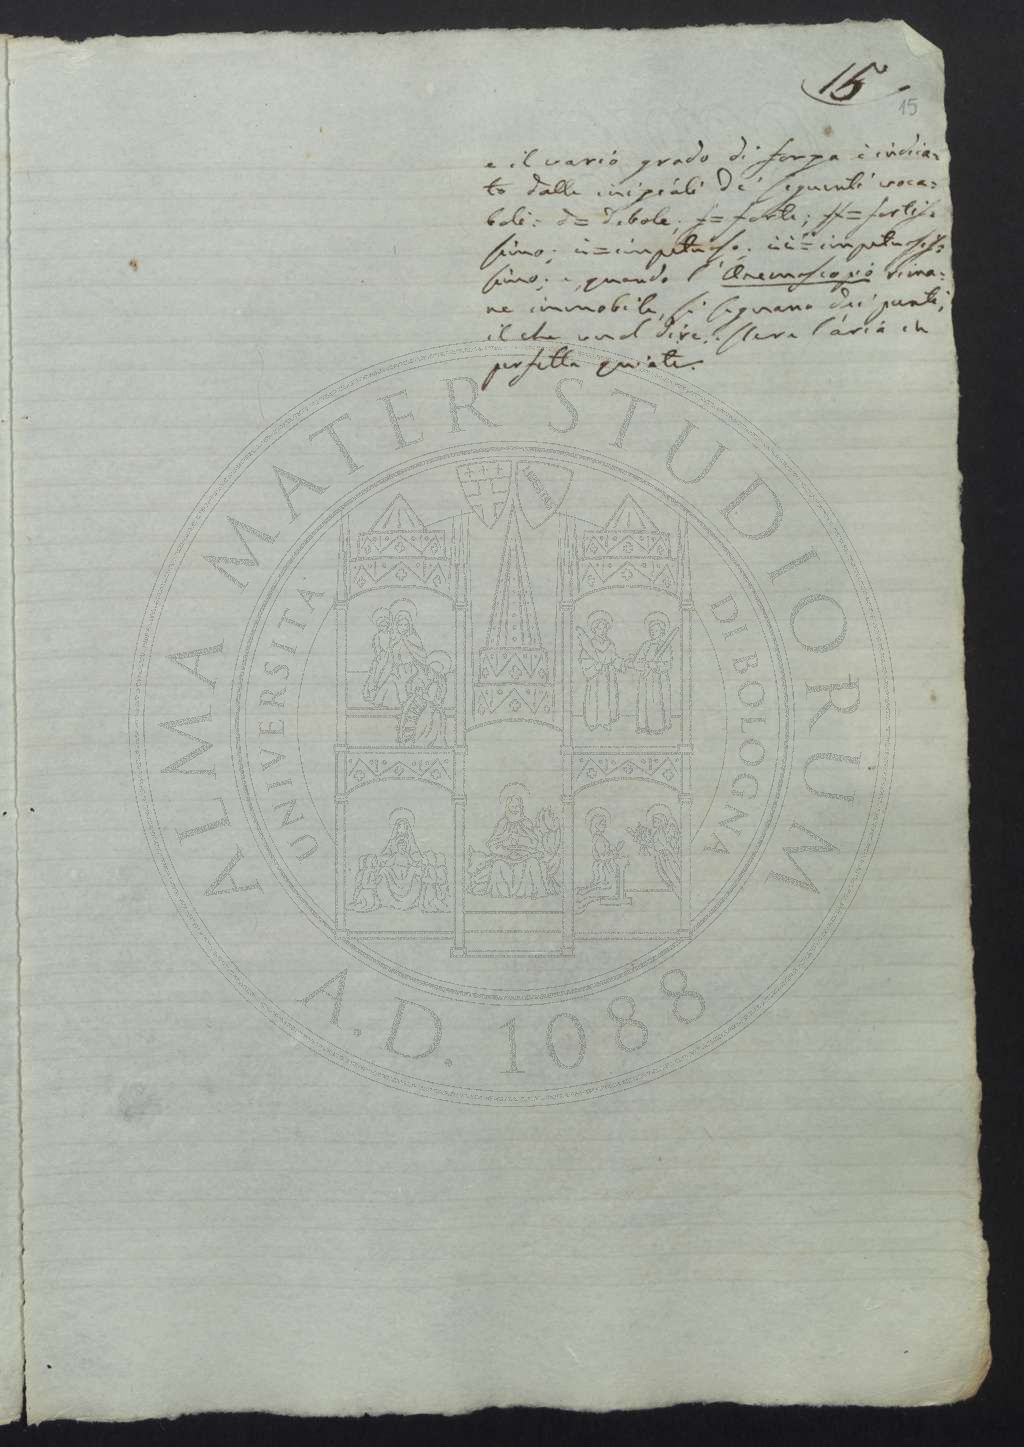 15
15
e il vario grado di forza è indica=
to dalle iniziali de' seguenti voca=
boli: d= debole; f= forte; ff= fortis=
simo; i= impetuoso; ii= impetuosis=
simo; e, quando l'Anemoscopio rima=
ne immobile, si segnano dei punti,
il che vuol dire: stare l'aria in
perfetta quiete.
ALMA MATER STUDIORUM
UNIVERSITÀ DI BOLOGNA
A.D. 1088